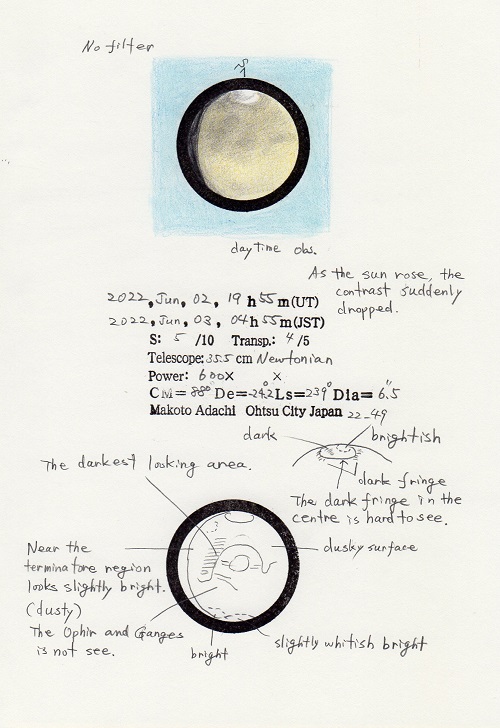 No filter
S
daytime obs.
As the sun rose, the
contrast suddenly
dropped.
2022, Jun, 02, 19 h 55 m (UT)
2022, Jun, 03, 04 h 55 m (JST)
S: 5 /10 Transp.: 4 /5
Telescope: 35.5 cm Newtonian
Power: 600X X
CM= 88° De=-24.2° Ls=239° Dia= 6.5"
Makoto Adachi Ohtsu City Japan 22-49
dark
brightish
The darkest looking area.
dark fringe
The dark fringe in the
centre is hard to see.
Near the
terminatore region
looks slightly bright.
(dusty)
dusky surface
The Ophir and Ganges
is not see.
bright
slightly whitish bright